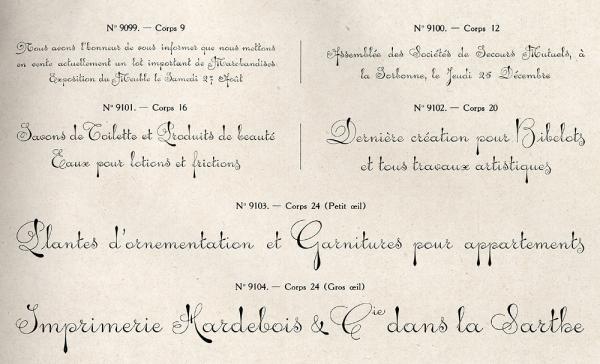 N° 9099. — Corps 9
Nous avons l'honneur de vous informer que nous mettons
en vente actuellement un lot important de Marchandises
Exposition du Meuble le Samedi 27 Août
N° 9100. — Corps 12
Assemblée des Sociétés de Secours Mutuels, à
la Sorbonne, le Jeudi 26 Décembre
N° 9101. — Corps 16
Savons de Toilette et Produits de beauté
Eaux pour lotions et frictions
N° 9102. — Corps 20
Dernière création pour Bibelots
et tous travaux artistiques
N° 9103. — Corps 24 (Petit œil)
Plantes d'ornementation et Garnitures pour appartements
N° 9104. — Corps 24 (Gros œil)
Imprimerie Hardebois & Cie dans la Sarthe